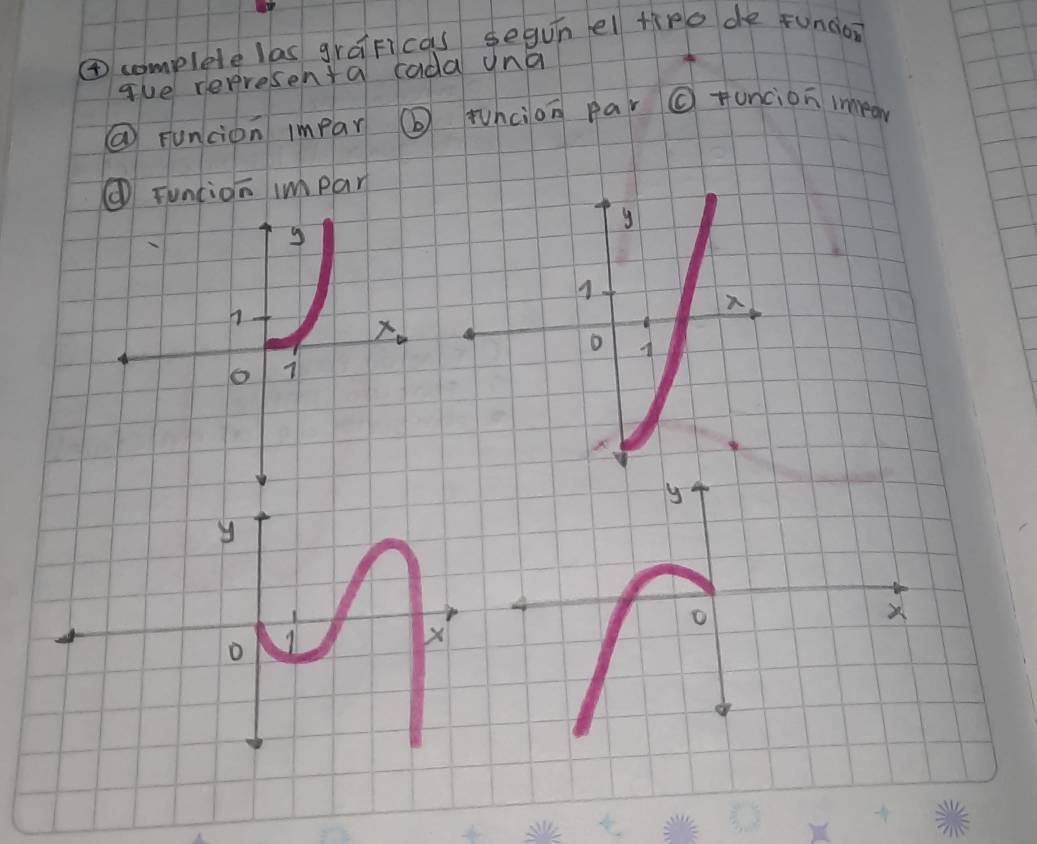 ④ complete las gráficas según el tipo de función
que representa cada una
ⓐ Función impar ⓑ función par ⓒ función impar
ⓓ Función impar
y
1
x
0 1
y
1
x
0 1
y
0 1 x
y
0
x